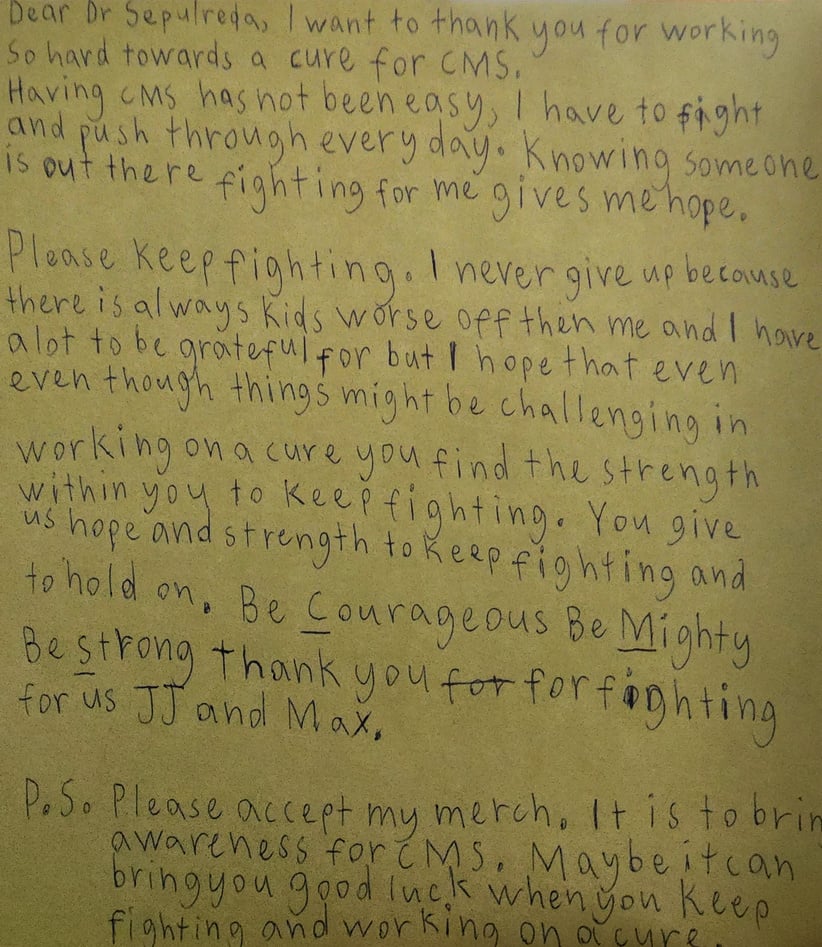 Dear Dr Sepulreda, I want to thank you for working
So hard towards a cure for CMS.
Having CMS has not been easy, I have to fight
and push through every day. Knowing someone
is out there fighting for me gives me hope.
Please keep fighting. I never give up because
there is always kids worse off then me and I have
alot to be grateful for but I hope that even
even though things might be challenging in
working on a cure you find the strength
within you to keep fighting. You give
us hope and strength to keep fighting and
to hold on. Be Courageous Be Mighty
Be strong thank you for for fighting
for us JJ and Max.
P.S. Please accept my merch. It is to brin
awareness for CMS. Maybe it can
bring you good luck when you keep
fighting and working on a cure.